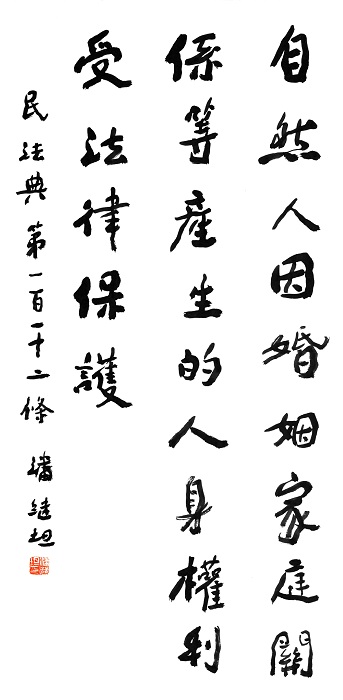 自然人因婚姻家庭關
係等產生的人身權利
受法律保護
民法典第一百一十二條 潘繼坦